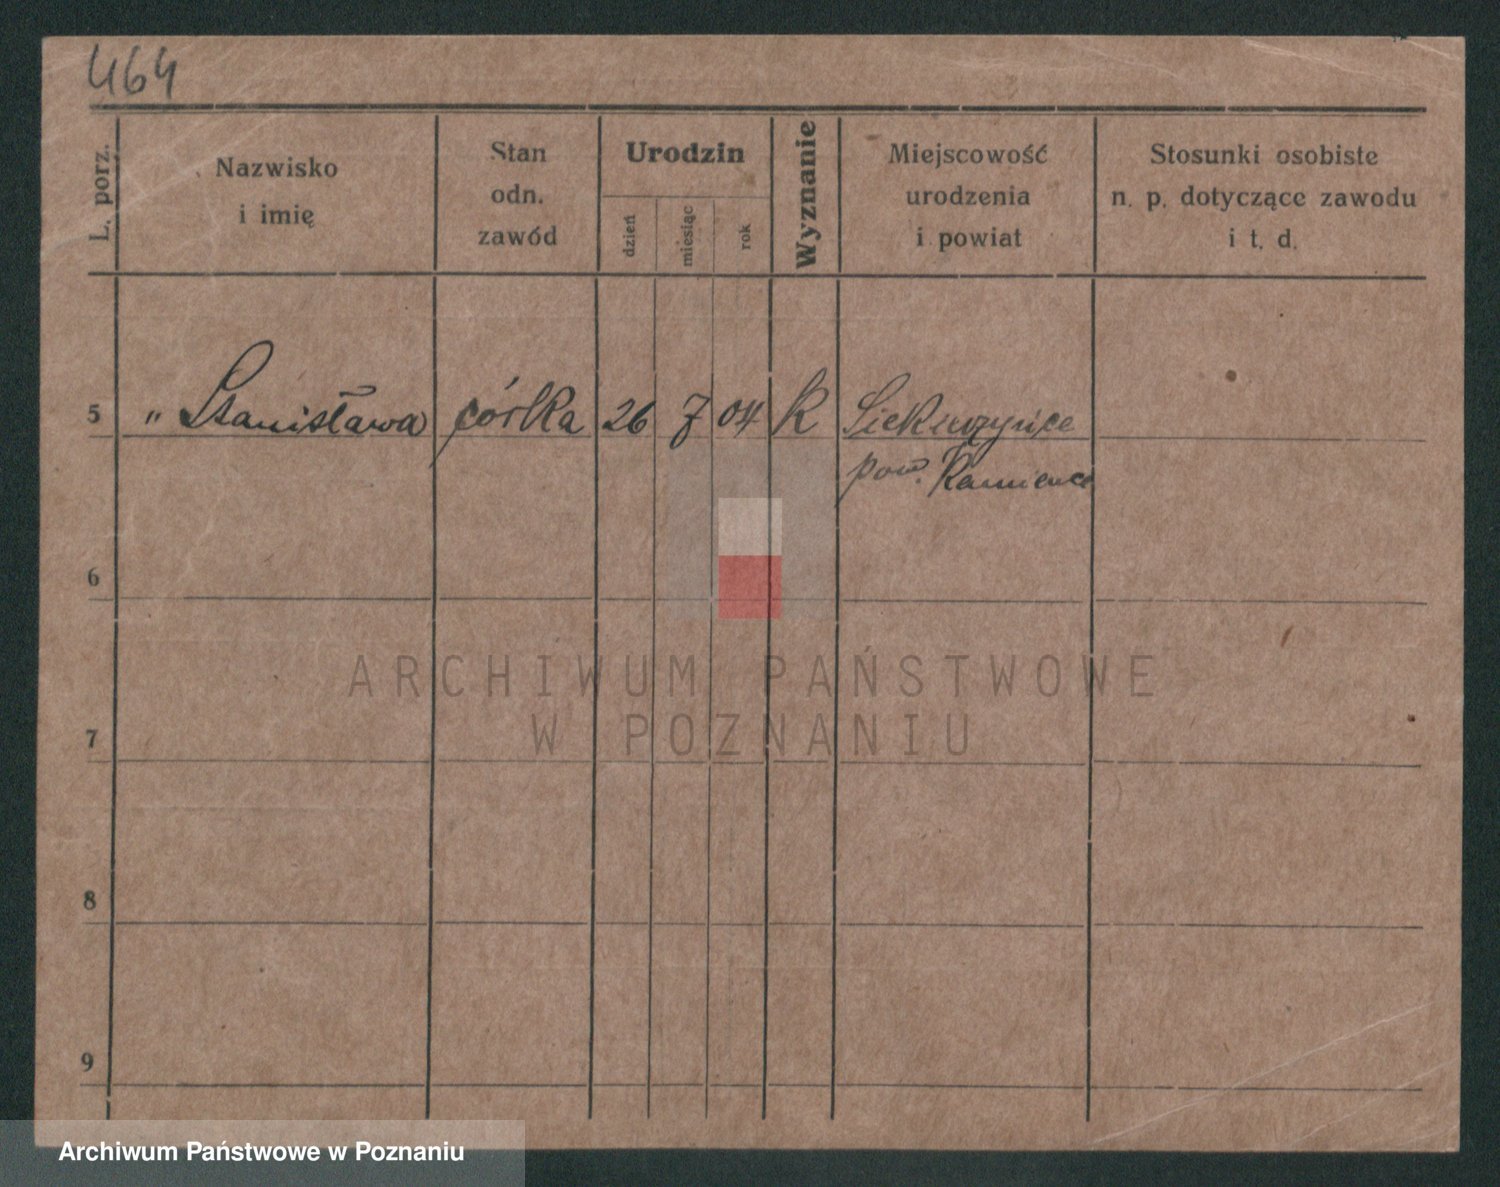 464
L. porz.
Nazwisko
i imię
Stan
odn.
zawód
Urodzin
dzień
miesiąc
rok
Wyznanie
Miejscowość
urodzenia
i powiat
Stosunki osobiste
n. p. dotyczące zawodu
i t. d.
5 " Stanisława córka 26 7 04 k
pow. Kamienec
6
7
8
9
ARCHIWUM PAŃSTWOWE
W POZNANIU
Archiwum Państwowe w Poznaniu